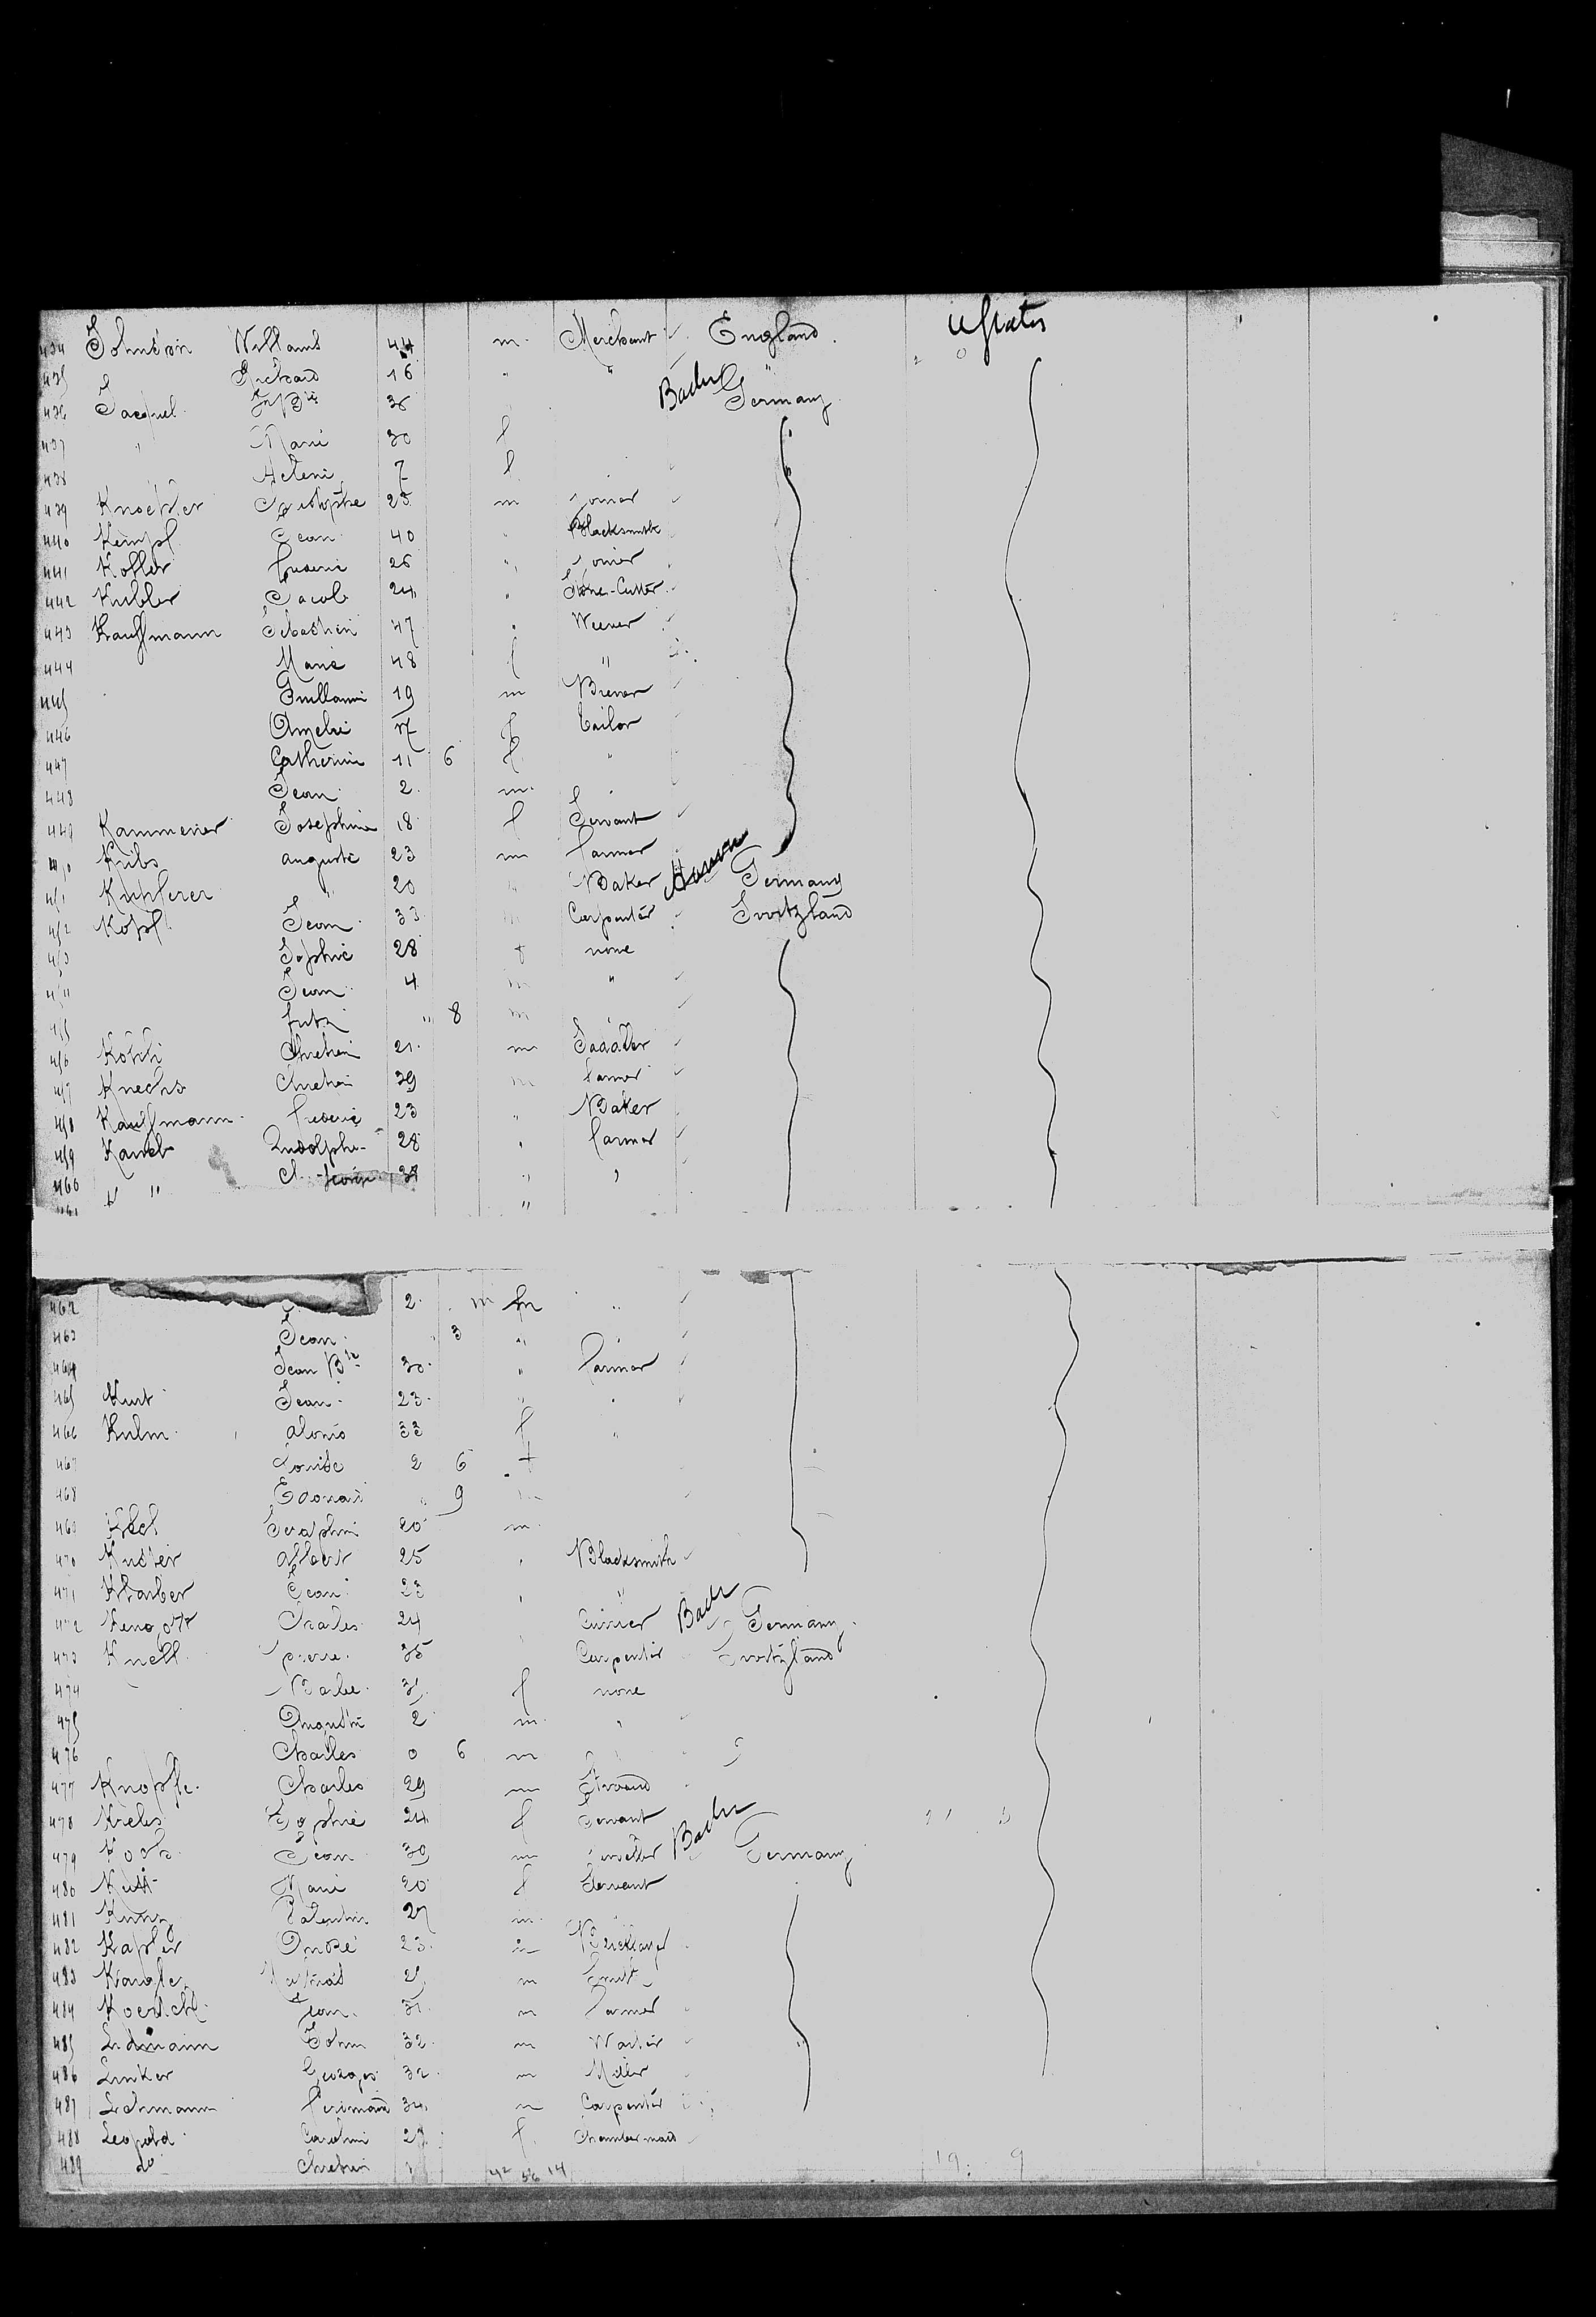 434 Johnson Williams 44 m. Merchant England. U States
435 " Richard 16 " " "
436 Jacquel Jn Bte 36 Baden Germany
437 " Marie 30 f
438 7 f
439 Knoebler 25 m Joiner
440 Kempf Jean 40 " Blacksmith
441 Koffler frederic 26 " Joiner
442 Kubler Jacob 24 " Stone-Cutter
443 Kauffmann Sebastien 47 " Weever
444 Marie 48 f "
445 Guillaume 19 m Brewer
446 Amelie 17 f Tailor
447 Catherine 11 6 f "
448 Jean 2 m.
449 Kammerier Josephine 18 f Servant
450 Kribs auguste 23 m farmer
451 " 20 " Baker Germany
452 Kopf Jean 33 m Carpenter Switzland
453 Sophie 28 f none
454 Jean 4 m "
455 fritz " 8 m
456 Kohli Chretien 21 m Saddler
457 Chretien 39 m farmer
458 Kauffmann frederic 23 " Baker
459 Rudolphe 28 " farmer
460 " " " "
461 "
462 2 m "
463 Jean 3 "
464 Jean Bte 30 " farmer
465 Kurt Jean 23 " "
466 Kulm 33 f "
467 Louise 2 6 f
468 Edouard " 9 m
469 Seraphin 20 m
470 Kuster Albert 25 " Blacksmith
471 Klauber Jean 23 " "
472 Charles 24 " Currier Baden Germany
473 Knell pierre 35 Carpenter Switzland
474 Barbe 31 f none
475 2 m "
476 Charles 0 6 m
477 Knopfle Charles 29 m
478 Krebs Sophie 24 f Servant
479 Koch Jean 30 m Jeweller Baden Germany
480 Marie 20 f Servant
481 Kunz Valentin 27 m
482 Kapfer André 23 m
483 m Smith
484 Jean 31 m farmer
485 John 32 m
486 Linker Georges 32 m Miller
487 Lehmann ferdinand 34 m Carpenter
488 Leopold Caroline 27 f Chambermaid
489 do Chretien 1
42 56 14
19: 9